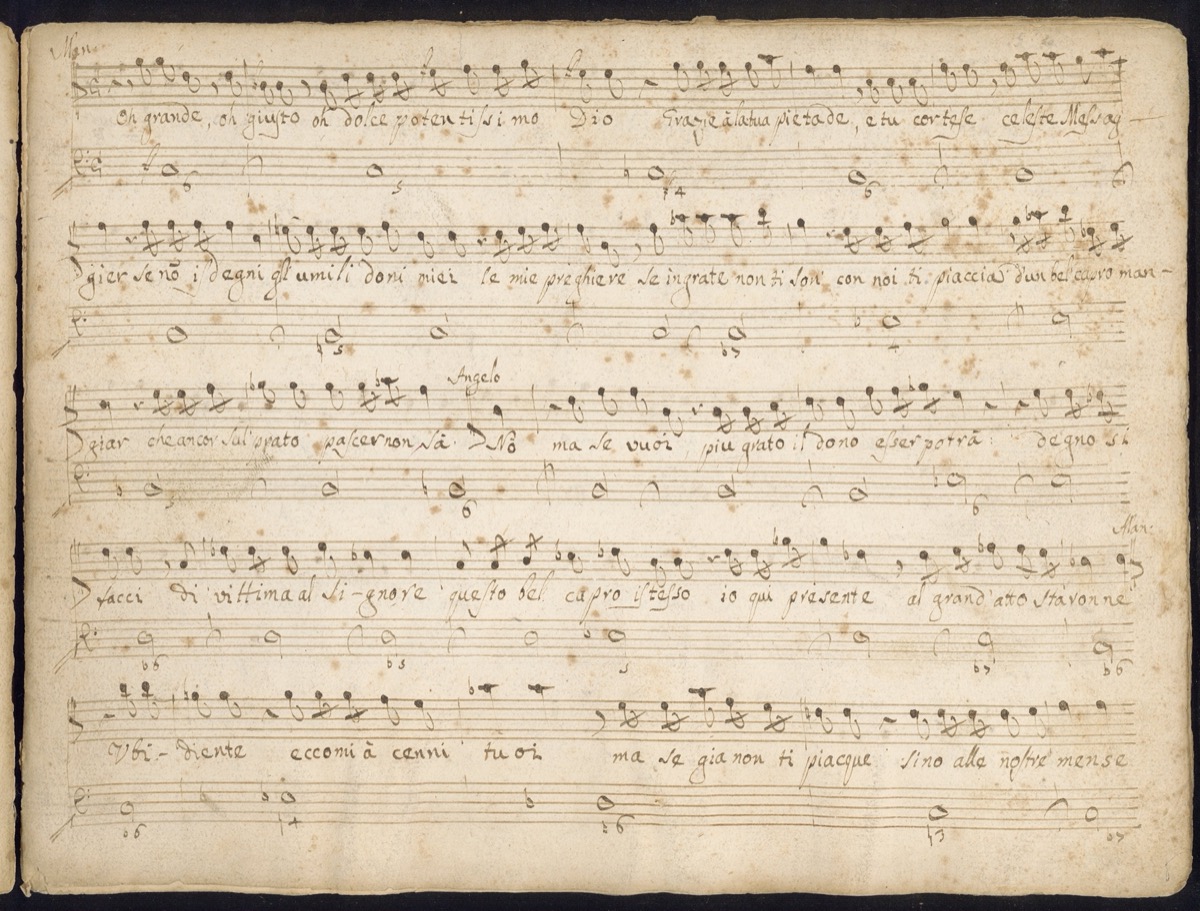 Man.
Oh grande, oh giusto oh dolce potentissimo Dio Grazie à la tua pietade, e tu cortese celeste Messag-
gier se nõ i degni gl'umili doni miei le mie preghiere se ingrate non ti son con noi ti piaccia d'un bel capro man-
Angelo
giar che ancor sul prato pascer non sà. Nò ma se vuoi più grato il dono esser potrà: degno si
Man:
facci di vittima al Si-gnore questo bel capro istesso io qui presente al grand'atto staronne
Vbi-diente eccomi à cenni tuoi ma se gia non ti piacque sino alle nostre mense